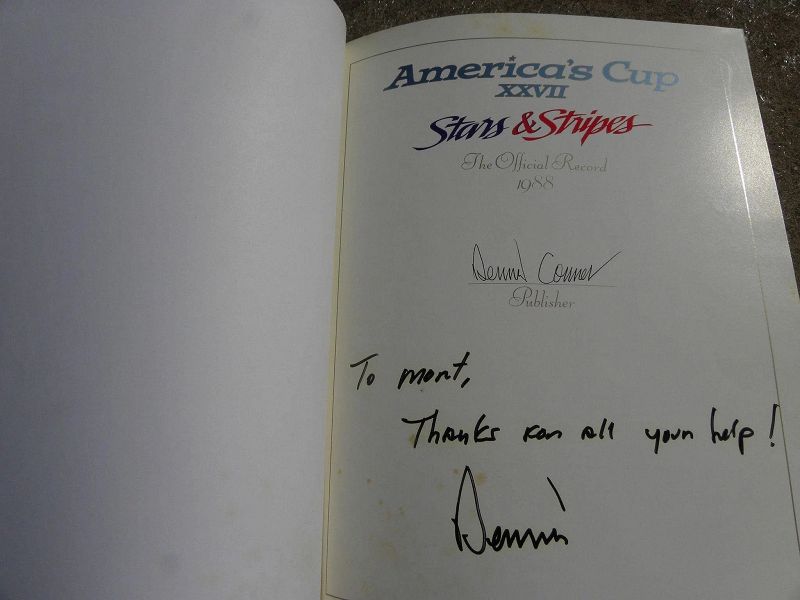 America's Cup
XXVII
Stars & Stripes
The Official Record
1988
Dennis Conner
Publisher
To Mort,
Thanks for all your help!
Dennis